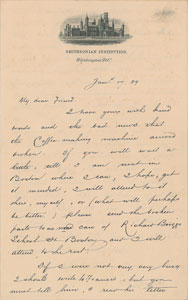 SMITHSONIAN INSTITUTION,
Washington,
My dear Friend
I have yours with kind
words and the bad news that
the Coffee-making machine arrived
broken. If you will wait a
little, until I am next in
Boston where I can, I hope, get
it mended, I will attend to it
then, myself, or (what will perhaps
be better) please send the broken
parts to care of Richard Briggs
School St Boston, and I will
attend to the rest.
If I were not very very busy
I should write & but you
must tell him, I read his letter